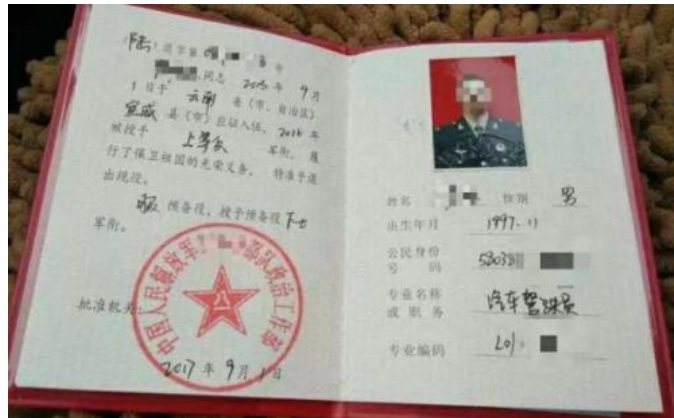 （陆）退字第 号
同志 2015 年 9 月
1 日于 云南 省（市、自治区）
宣威 县（市）应征入伍，2016 年
被授予 上等兵 军衔，履
行了保卫祖国的光荣义务，特准予退
出现役。
服 预备役，授予预备役 下士
军衔。
批准机关：
中国人民解放军 部队政治工作部
2017 年 9 月 1 日
姓名 性别 男
出生年月 1997.11
公民身份
号 码
专业名称 汽车驾驶员
或职务
专业编码